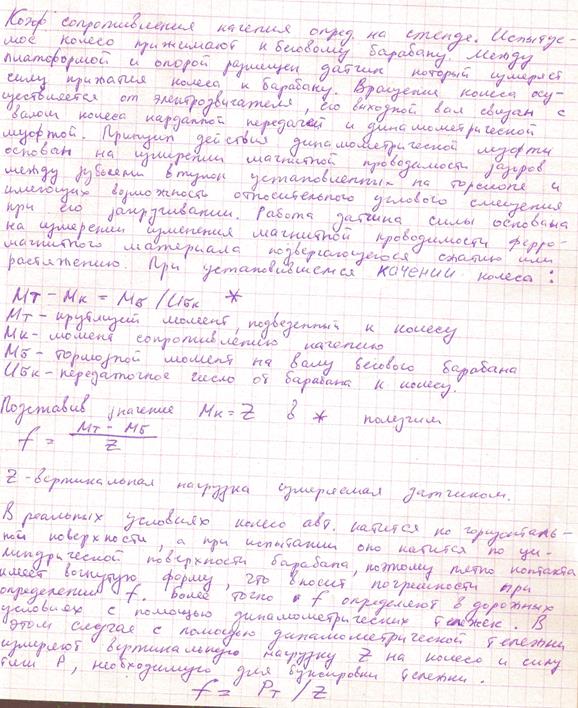 Коэф сопротивления качения опред. на стенде. Испытуе-
мое колесо прижимают к беговому барабану. Между
платформой и опорой размещен датчик который измеряет
силу прижатия колеса к барабану. Вращение колеса осу-
ществляется от электродвигателя, его выходной вал связан с
валом колеса карданной передачей и динамометрической
муфтой. Принцип действия динамометрической муфты
основан на измерении магнитной проводимости зазоров
между зубьями втулок установленных на торсионе и
имеющих возможность относительного углового смещения
при его закручивании. Работа датчика силы основана
на измерении изменения магнитной проводимости ферро-
магнитного материала подвергающегося сжатию или
растяжению. При установившемся качении колеса:
Мт - Мк = Мб / Uбк *
Мт - крутящий момент, подведенный к колесу
Мк - момент сопротивлению качению
Мб - тормозной момент на валу бегового барабана
Uбк - передаточное число от барабана к колесу.
Подставив значение Мк = Z в * получим
f = Мт - Мб / Z
Z - вертикальная нагрузка измеряемая датчиком.
В реальных условиях колесо авт. катится по горизонталь-
ной поверхности, а при испытании оно катится по ци-
линдрической поверхности барабана, поэтому пятно контакта
имеет вогнутую форму, что вносит погрешности при
определении f. Более точно f определяют в дорожных
условиях с помощью динамометрических тележек. В
этом случае с помощью динамометрической тележки
измеряют вертикальную нагрузку Z на колесо и силу
тяги P, необходимую для буксировки тележки.
f = Pт / Z